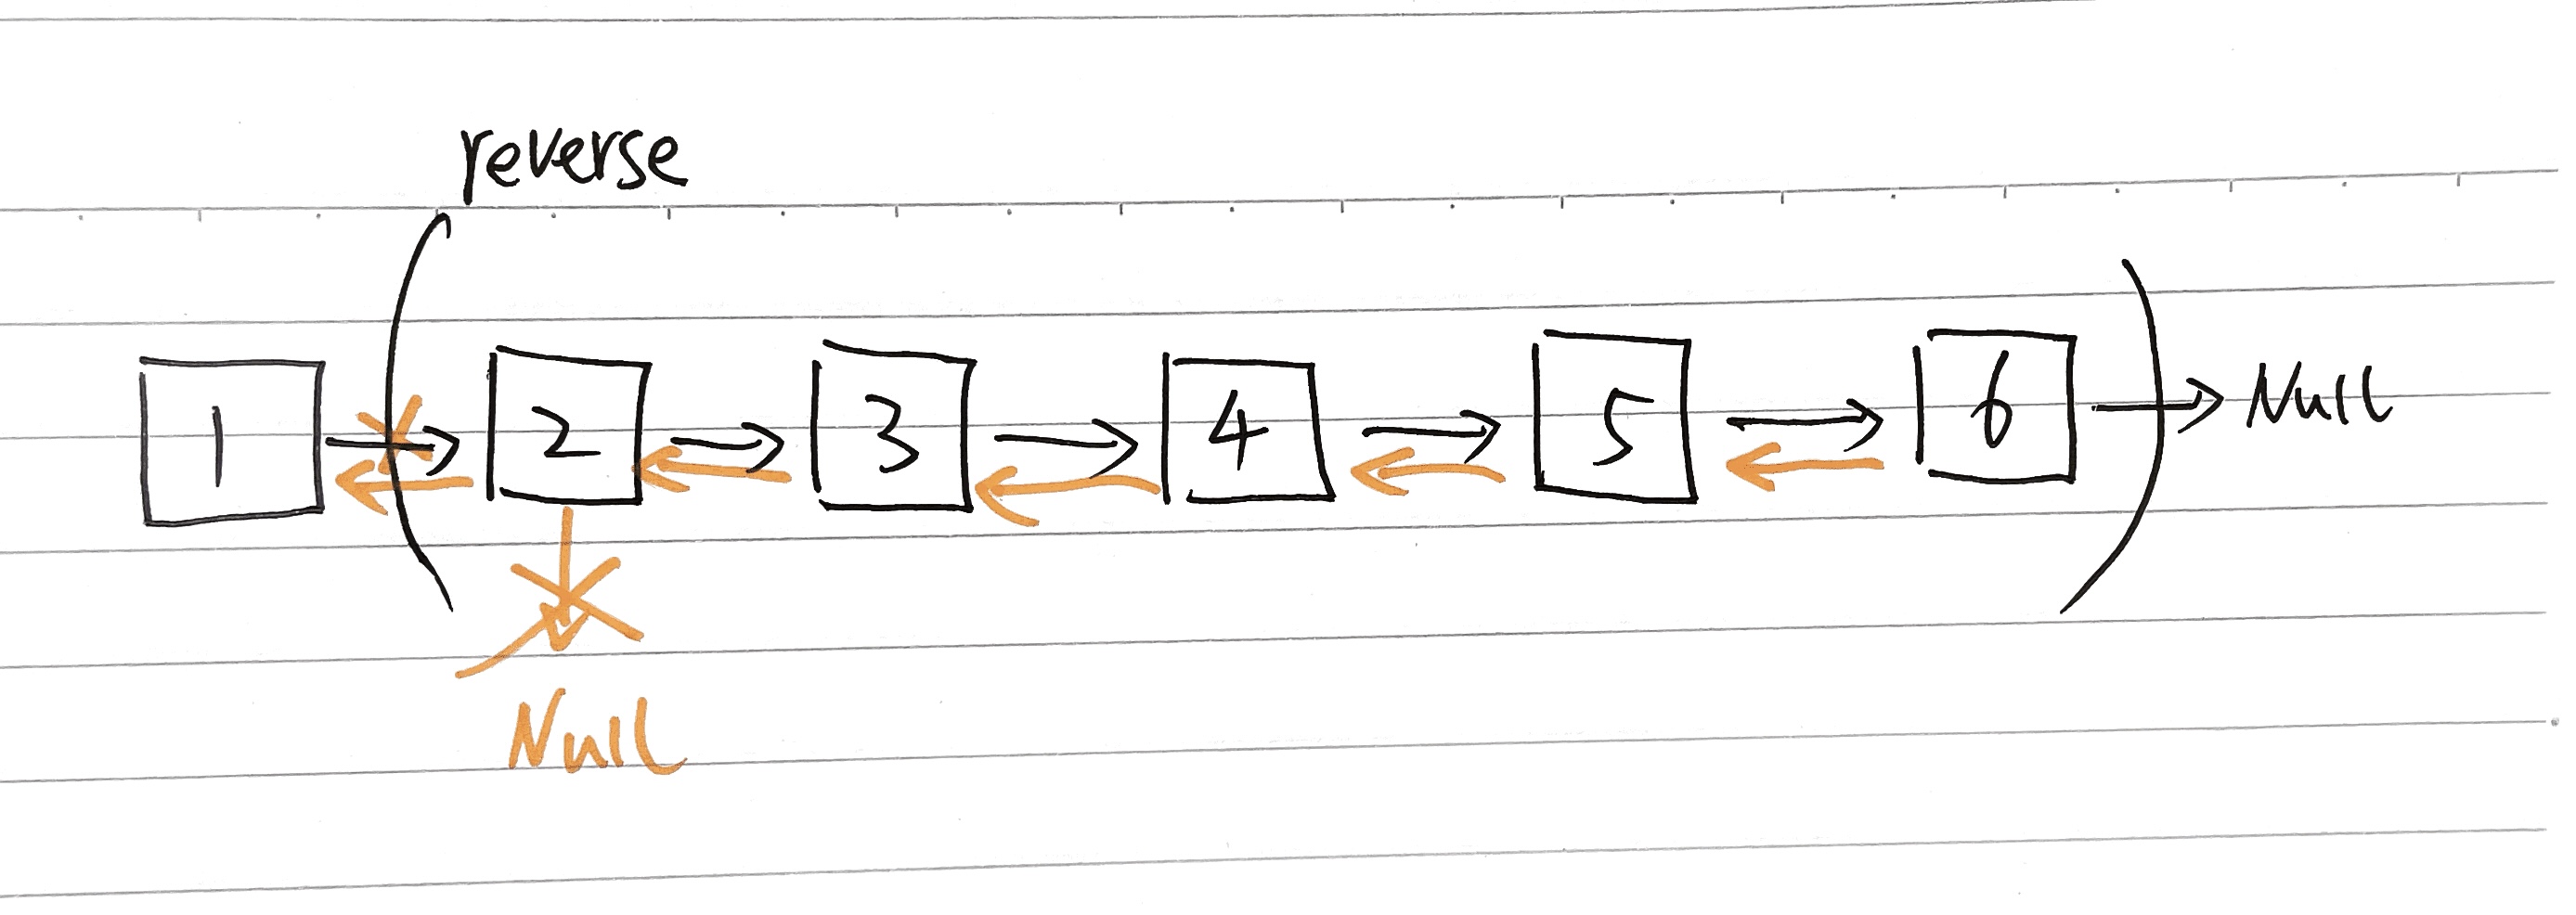 reverse
1 2 3 4 5 6 Null
Null